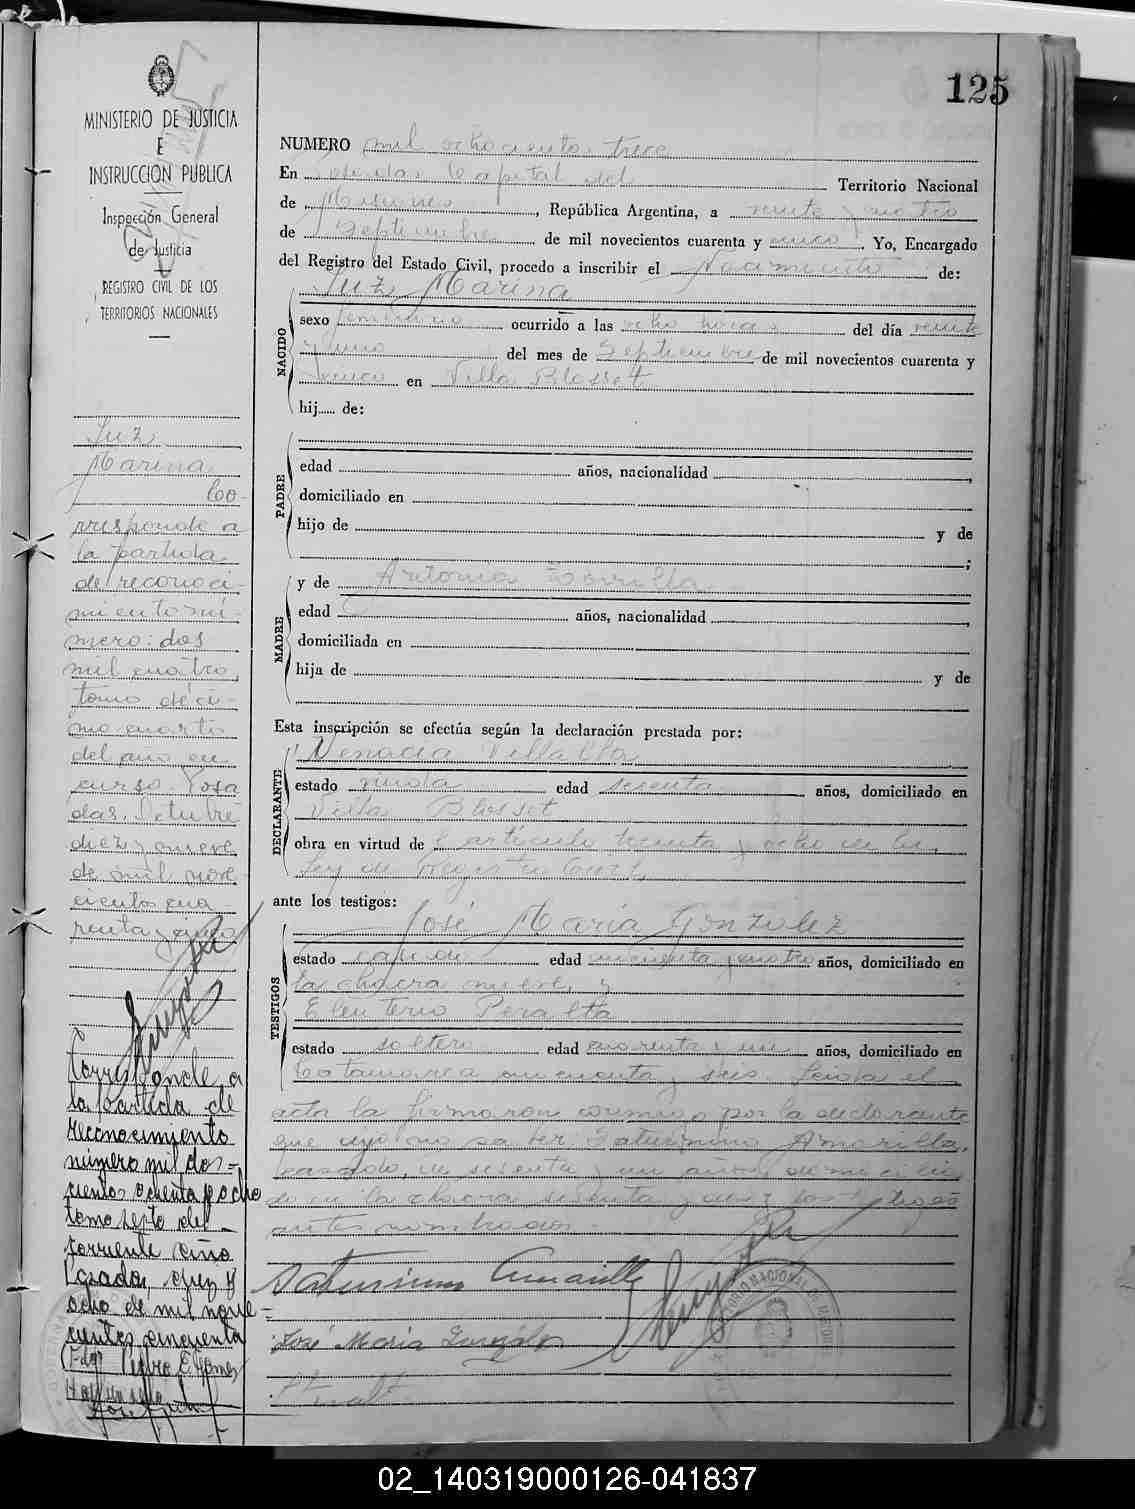 125
MINISTERIO DE JUSTICIA
E
INSTRUCCION PUBLICA
Inspección General
de Justicia
REGISTRO CIVIL DE LOS
TERRITORIOS NACIONALES
Luz
Marina
Co-
rresponde a
la partida
de reconoci-
miento nú-
mero: dos
mil cuatro,
tomo déci-
mo cuarto
del año en
curso. Posa
das, Octubre
diez y nueve
de mil nove-
cientos cua-
renta y cinco
Corresponde a
la partida de
reconocimiento
número mil dos=
cientos ochenta y ocho
tomo sexto del
corriente año
Posadas,
ocho de mil nove=
cientos cincuenta
Pedro E. Gomez
NUMERO mil ochocientos trece
En Posadas Capital del Territorio Nacional
de Misiones, República Argentina, a veinte y cuatro
de Septiembre de mil novecientos cuarenta y cinco. Yo, Encargado
del Registro del Estado Civil, procedo a inscribir el Nacimiento de:
Luz Marina
NACIDO
sexo femenino ocurrido a las ocho horas del día veinte
y uno del mes de Septiembre de mil novecientos cuarenta y
cinco en Villa Blosset
hij...... de:
PADRE
edad años, nacionalidad ,
domiciliado en
hijo de y de
;
MADRE
y de Antonia
edad años, nacionalidad ,
domiciliada en
hija de y de
Esta inscripción se efectúa según la declaración prestada por:
DECLARANTE
Venacia Villalba
estado viuda edad sesenta años, domiciliado en
Villa Blosset
obra en virtud de l artículo treinta y ocho de la
Ley de Registro Civil
ante los testigos:
TESTIGOS
José María Gonzalez
estado casado edad cincuenta y cuatro años, domiciliado en
la chacra nueve, y
Eleuterio Peralta
estado soltero edad cuarenta y un años, domiciliado en
Catamarca cincuenta y seis. Leida el
acta la firmaron conmigo por la declarante
que dijo no saber Saturnino Amarilla,
casado, de sesenta y un años, domicilia
do en la chacra sesenta y los testigos
antes nombrados.-
Saturnino Amarilla
José Maria González
Peralta
02_140319000126-041837